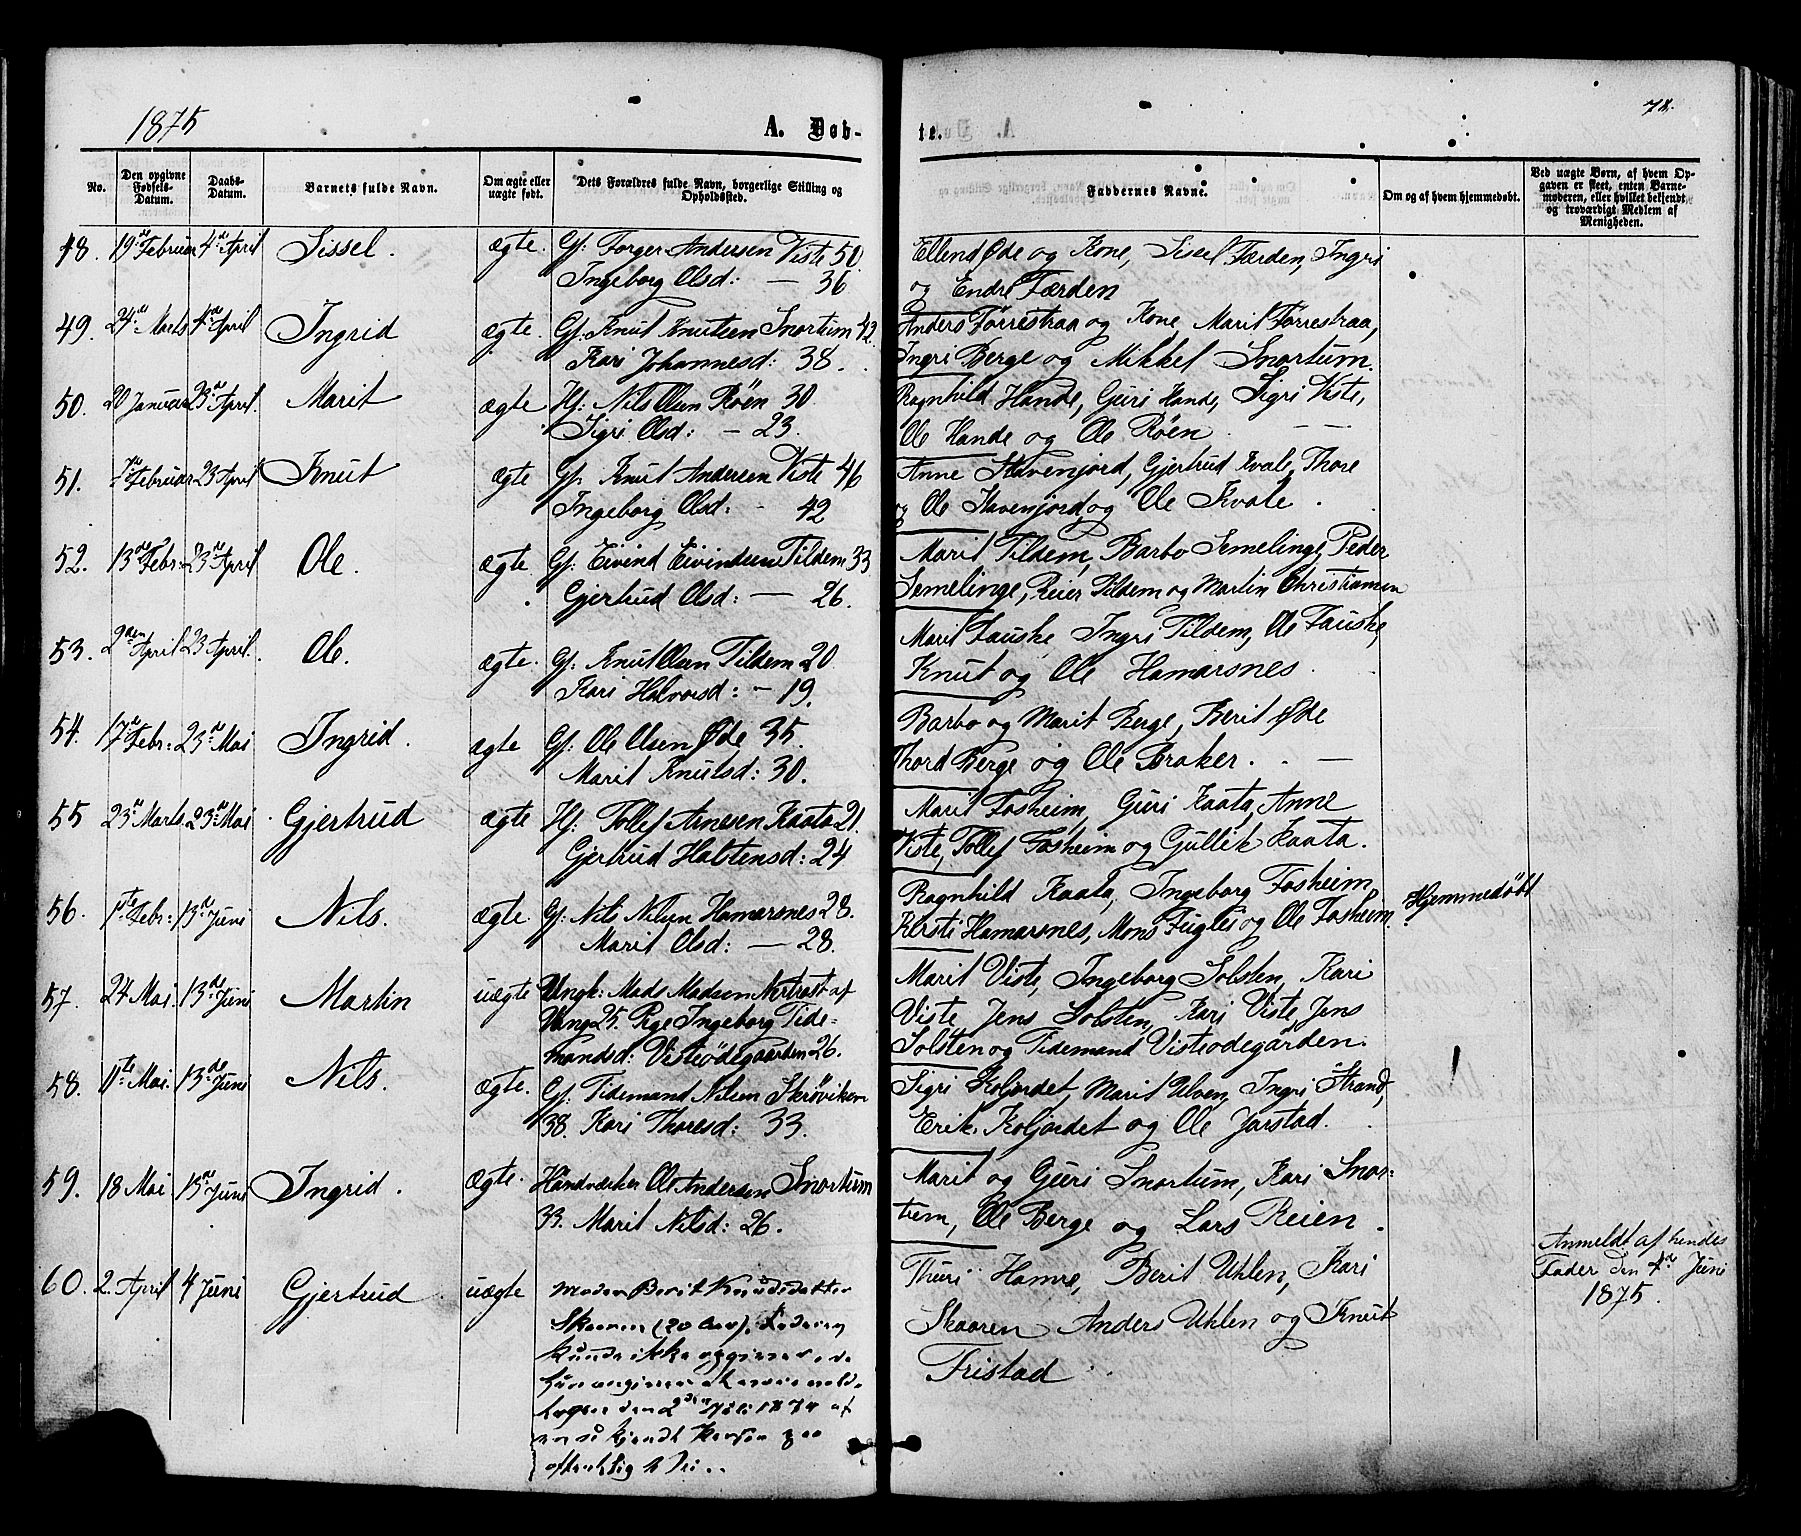 1875
A. Døb-
te.
78.
No.
Den opgivne Fødsels-Datum.
Daabs-Datum.
Barnets fulde Navn.
Om ægte eller uægte født.
Dets Forældres fulde Navn, borgerlige Stilling og Opholdssted.
Faddernes Navne.
Om og af hvem hjemmedøbt.
Ved uægte Børn, af hvem Opgaven er skeet, enten Barnemoderen, eller hvilket bekjendt og troværdigt Medlem af Menigheden.
48. 19de Februar 4de April Sissel. ægte. Gf: Torger Andersen Viste 50.
Ingeborg Olsd: — 36
Ellend Øde og Kone, Sissel Færden, Ingri
og Endre Færden
49. 24de Marts 4de April Ingrid ægte. Gf. Knut Knutsen Snortum 42.
Kari Johannesd: 38.
Anders Førrestraa og Kone, Marit Førrestraa,
Ingri Berge og Mikkel Snortum.
50. 20 Januar 23de April. Marit ægte Hf: Nils Olsen Røen 30
Sigri Olsd: — 23.
Ragnhild Hande, Guri Hande, Sigri Viste,
Ole Hande og Ole Røen.
51. Februar 23 April Knut ægte Gf. Knut Andersen Viste 46
Ingeborg Olsd: - 42
Anne Havenjord, Gjertrud Kvale, Thore
og Ole Havenjord og Ole Kvale.
52. 13de Febr: 23de April Ole. ægte. Gf: Eivind Eivindsen Tildem 33
Gjertrud Olsd: — 26.
Marit Tildem, Barbo Semelinge, Peder
Semelinge, Reier Tildem og Martin Christiansen
53. 2den April 23 April. Ole. ægte. Gf. Knut Olsen Tildem 20
Kari Halvorsd: — 19.
Marit Fauske, Ingri Tildem, Ole Fauske,
Knut og Ole Hamarsnes.
54. 17de Febr: 23de Mai Ingrid. ægte Gf: Ole Olsen Øde 35.
Marit Knutsd: 30.
Barbo og Marit Berge, Berit Øde
Thord Berge og Ole Braker.
55 23de Marts 23de Mai Gjertrud ægte Hf: Tollef Arnesen Kaata 21.
Gjertrud Halstensd: 24
Marit Fosheim, Guri Kaata, Anne
Viste, Tollef Fosheim og Gullik Kaata.
56. 1ste Febr: 13de Juni Nils. ægte Gf: Nils Nilsen Hamarsnes 28.
Marit Olsd: — 28.
Ragnhild Kaata, Ingeborg Fosheim
Kirsti Hamarsnes, Mons Fuglei og Ole Fosheim.
Hjemmedøbt
57. 24 Mai. 13de Juni Martin uægte Ungk: Mads Madsen Nertrost af
Vang 25. Pige Ingeborg Tide-
mandsd: Visteødegaarden 26.
Marit Viste, Ingeborg Solsten, Kari
Viste Jens Solsten, Kari Viste, Jens
Solsten og Tidemand Visteødegården.
58. 11te Mai. 13de Juni Nils. ægte. Gf: Tidemand Nilsen Skrøviken
38. Kari Thoresd: 33.
Sigri Koljordet, Marit Ulven, Ingri Strand,
Erik Koljordet og Ole Jarstad.
59. 18 Mai 13de Juni Ingrid. ægte. Håndværker Ole Andersen Snortum
33. Marit Nilsd: 26.
Marit og Guri Snortum, Kari Snor-
tum, Ole Berge og Lars Reien.
60. 2. April 4 Juni Gjertrud uægte Moder Berit Knudsdatter
Skaaren (20 Aar). Faderen
kunde ikke opgives, da
hun angiver at være vold-
tagen den 2den Juli 1874 af
en ukjendt Person paa
offentlig Vei.
Thuri Hamre, Berit Uhlen, Kari
Skaaren Anders Uhlen og Knut
Fristad
Anmeldt af hendes
Fader den 4de Juni
1875.